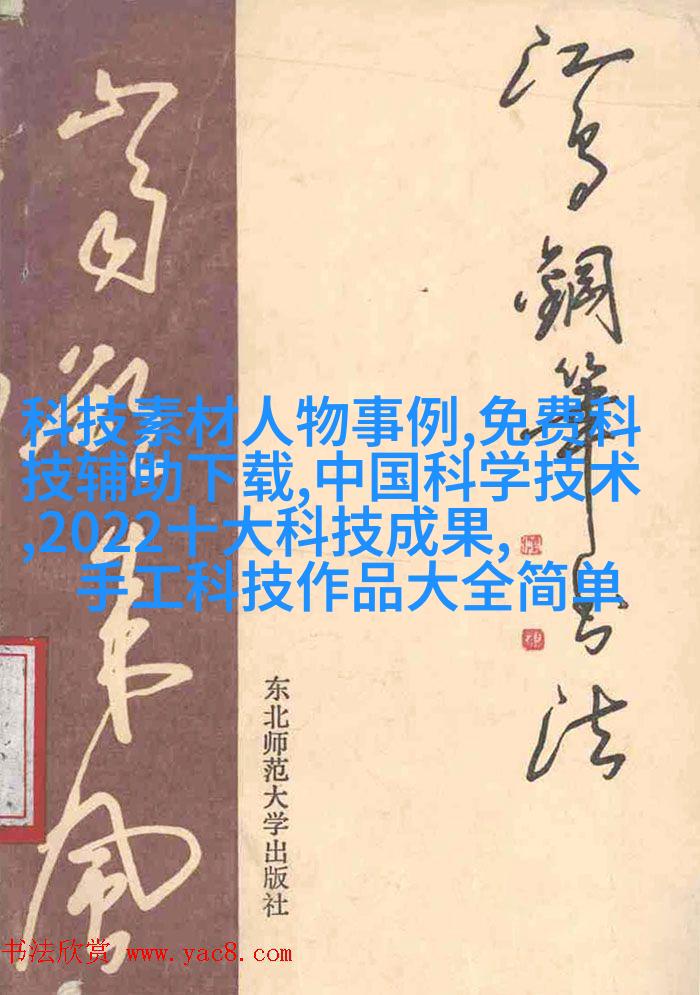 江鸟鋼筆书法
科技素材人物事例,免费科
技辅助下载,中国科学技术
,2022十大科技成果,
手工科技作品大全简单
东北师范大学出版社
书法欣赏 www.yac8.com